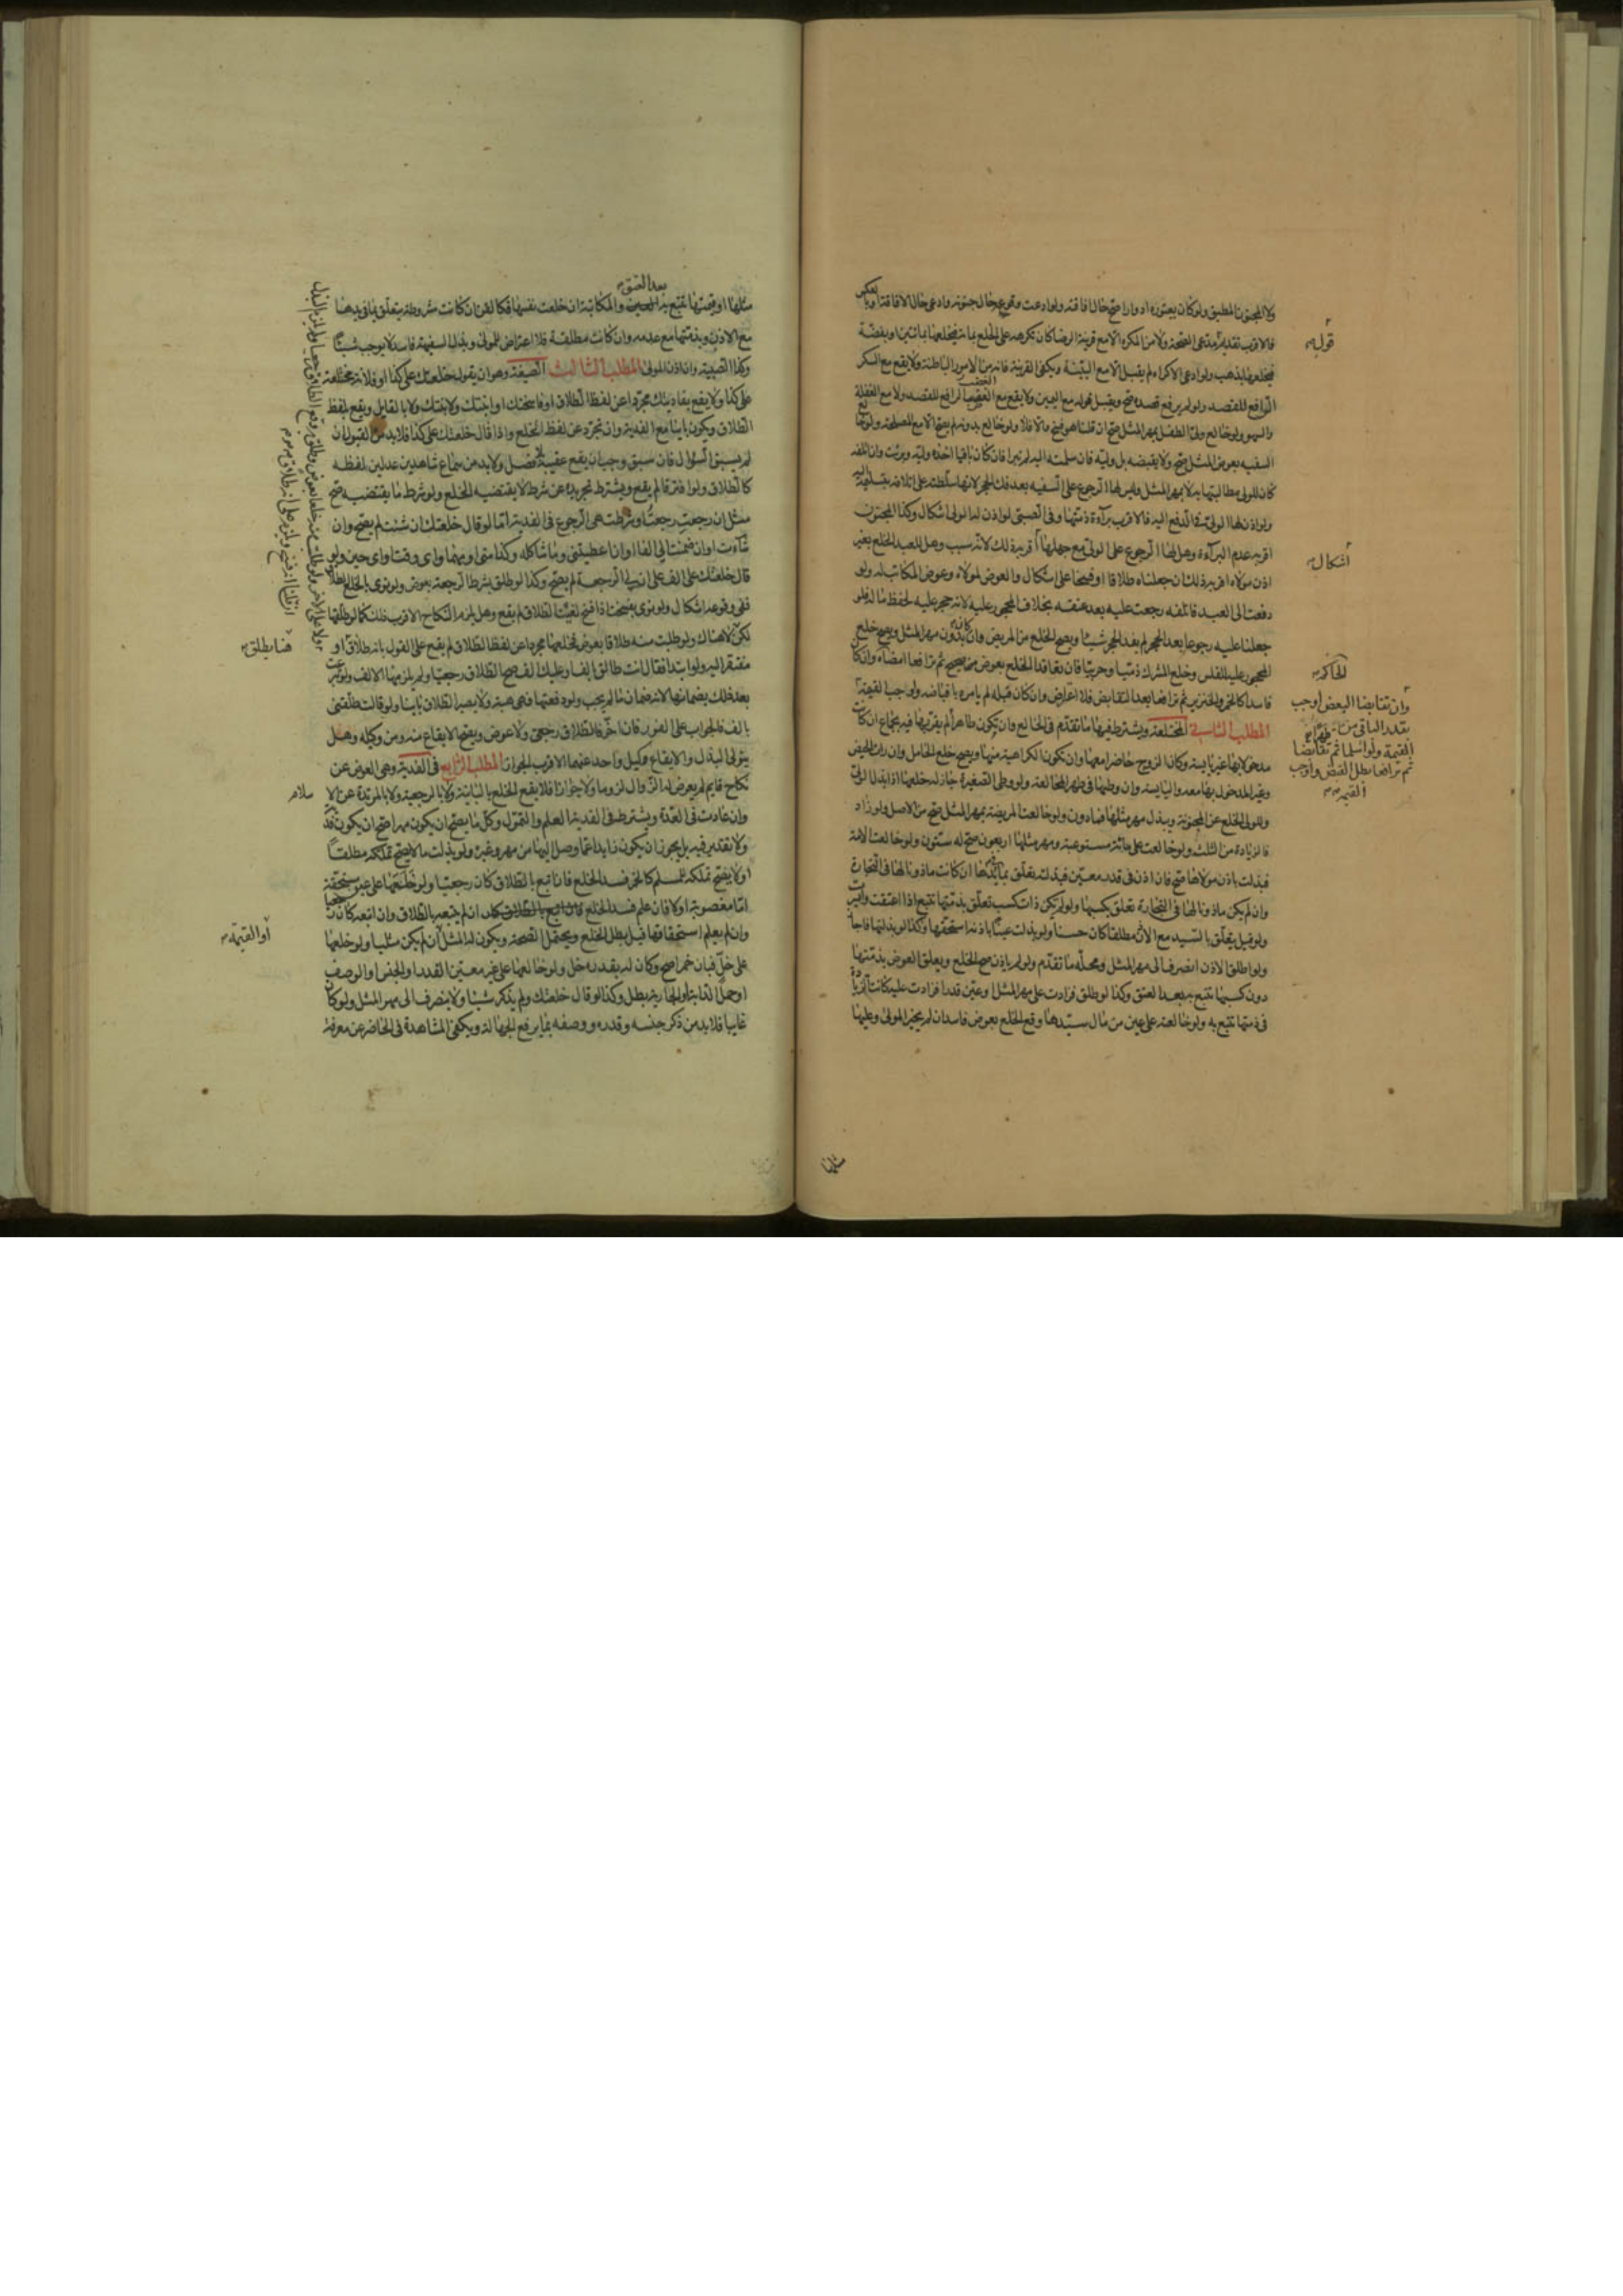 ولا المجنون المطبق ولو كان يعتوره ادوارا صح حال افاقته ولو ادعت وقوعه حال جنونه وادعى حال الافاقة او بالعكس
فالاقرب تقديم مدعى الصحة ولا من المكره الا مع قرينة الرضا كان يكرهه على الخلع بمائة فيخلعها بمائتين او بفضة
فيخلعها بذهب ولو ادعى الاكراه لم يقبل الا مع البينة ويكفى القرينة فانه من الامور الباطنة ولا يقع مع السكر
الرافع للقصد ولو لم يرفع قصده صح ويقبل قوله مع اليمين ولا يقع مع الغضب الرافع للقصد ولا مع الغفلة
والسهو ولو خالع ولى الطفل بمهر المثل صح ان قلنا هو فسخ والا فلا ولو خالع بدونه لم يصح الا مع المصلحة ولو خالع
السفيه بعوض المثل صح ولا يقبضه بل وليه فان سلمته اليه لم تبرا فان كان باقيا اخذه وليه وبرئت وان اتلفه
كان للولى مطالبتها به لا بمهر المثل وليس لها الرجوع على السفيه بعد فك الحجر لانها سلطته على اتلافه بتسليمه اليه
ولو اذن لها الولى فى الدفع اليه فالاقرب براءة ذمتها وفى الصبى لو اذن له الولى اشكال وكذا المجنون
اقربه عدم البراءة وهل لها الرجوع على الولى مع جهلها اقربه ذلك لانه سبب وهل للعبد الخلع بغير
اذن مولاه اقربه ذلك ان جعلناه طلاقا او فسخا على اشكال والعوض لمولاه وعوض المكاتب له ولو
دفعت الى العبد فاتلفه رجعت عليه بعد عتقه بخلاف المحجور عليه لانه حجر عليه لحفظ ماله فلو
جعلنا عليه رجوعا بعد الحجر لم يفد الحجر شيئا ويصح الخلع من المريض وان كان بدون مهر المثل ويصح خلع
المحجور عليه للفلس وخلع المشرك ذميا وحربيا فان تعاقدا الخلع بعوض صحيح ثم ترافعا امضاه وان كان
فاسدا كالخمر والخنزير ثم ترافعا بعد التقابض فلا اعتراض وان كان قبله لم يامره باقباضه ولو اوجب القيمة
المطلب الثانى المختلعة ويشترط فيها ما تقدم فى الخالع وان يكون طاهرا لم يقربها فيه بجماع ان كانت
مدخولا بها غير يايسة وكان الزوج حاضرا معها وان تكون الكراهية منها ويصح خلع الحامل وان رات الحيض
وغير المدخول بها معه واليايسة وان وطيها فى طهر المخالعة ولو وطى الصغيرة جاز له خلعها اذا بذل الولى
وللولى الخلع عن المجنونة ويبذل مهر مثلها فما دون ولو خالعت المريضة بمهر المثل صح من الاصل ولو زاد
فالزيادة من الثلث ولو خالعت على مائة مستوعبة ومهر مثلها اربعون صح له ستون ولو خالعت الامة
فبذلت باذن مولاها صح فان اذن فى قدر معين فبذلته تعلق بما فى يدها ان كانت ماذونا لها فى التجارة
وان لم يكن ماذونا لها فى التجارة تعلق بكسبها ولو لم يكن ذات كسب تعلق بذمتها تتبع اذا اعتقت وايسرت
ولو قيل يتعلق بالسيد مع الاذن مطلقا كان حسنا ولو بذلت عينا باذنه استحقها وكذا لو بذلتها فاجاز
ولو اطلق الاذن انصرف الى مهر المثل ومحله ما تقدم ولو لم ياذن صح الخلع ويعلق العوض بذمتها
دون كسبها تتبع به بعد العتق وكذا لو طلق فزادت على مهر المثل او عين قدرا فزادت عليه كانت الزيادة
فى ذمتها تتبع به ولو خالعته على عين من مال سيدها وقع الخلع بعوض فاسد ان لم يجز المولى وعليها
قوله
اشكال
الحاكم
وان تقابضا البعض اوجب
بقدر الباقى من
القيمة ولو اسلما ثم تقابضا
ثم ترافعا بطل القبض واوجب
القيمة
مثلها
بعد العتق
مثلها او قيمتها تتبع به والمكاتبة ان خلعت نفسها فكالقن ان كانت مشروطة يتعلق بما فى يدها
مع الاذن وبذمتها مع عدمه وان كانت مطلقة فلا اعتراض للمولى وبذل السفيهة فاسد لا يوجب شيئا
وكذا الصبية وان اذن المولى المطلب الثالث الصيغة وهو ان يقول خلعتك على كذا او فلانة مختلعة
على كذا ولا يقع بفاديتك مجردا عن لفظ الطلاق او فاسختك او ابنتك ولا بتتك ولا بالتقايل ويقع بلفظ
الطلاق ويكون باينا مع الفدية وان تجرد عن لفظ الخلع واذا قال خلعتك على كذا فلا بد من القبول ان
لم يسبق السؤال فان سبق وجب ان يقع عقيبه بلا فصل ولا بد من سماع شاهدين عدلين لفظه
كالطلاق ولو افترقا لم يقع ويشترط تجريده عن شرط لا يقتضيه الخلع ولو شرط ما يقتضيه صح
مثل ان رجعت رجعت او شرطت هى الرجوع فى الفدية اما لو قال خلعتك ان شئت لم يصح وان
شاءت او ان ضمنت لى الفا او ان اعطيتنى وما شاكله وكذا متى او مهما او اى وقت او اى حين ولو
قال خلعتك على الف على ان لى الرجعة لم يصح وكذا لو طلق بشرط الرجعة بعوض ولو نوى بالخلع الطلاق
ففى وقوعه اشكال ولو نوى بفسخت اذا فسخ لعيب الطلاق لم يقع وهل يلزمه النكاح الاقرب ذلك كما لو طلقها
لكن لا هناك ولو طلبت منه طلاقا بعوض فخلعها مجردا عن لفظ الطلاق لم يقع على القول بانه طلاق او
مفتقر اليه ولو ابتدا فقال انت طالق بالف او عليك الف صح الطلاق رجعيا ولم يلزمها الالف ولو تبرعت
بعد ذلك بضمانها لانه ضمان ما لم يجب ولو دفعتها فهى هبة ولا يصير الطلاق باينا ولو قالت طلقنى
بالف فالجواب على الفور فان اخر فالطلاق رجعى ولا عوض ويصح الايقاع منه ومن وكيله وهل
يتولى البذل والايقاع وكيل واحد عنهما الاقرب الجواز المطلب الرابع فى الفدية وهى العوض عن
نكاح قايم لم يعرض له الزوال لزوما ولا جوازا فلا يقع الخلع بالباينة ولا بالرجعية ولا بالمرتدة عن الاسلام
وان عادت فى العدة ويشترط فى الفدية العلم والتمول وكل ما يصح ان يكون مهرا صح ان يكون فدية
ولا تقدير فيه بل يجوز ان يكون زايدا عما وصل اليها من مهر وغيره ولو بذلت ما لا يصح تملكه مطلقا
او لا يصح تملكه للمسلم كالخمر فسد الخلع فان اتبع بالطلاق كان رجعيا ولو خلعها على عين مستحقة
اما مغصوبة او لا فان علم فسد الخلع ان لم يتبعه بالطلاق وان اتبعه كان رجعيا
وان لم يعلم استحقاقها قيل يبطل الخلع ويحتمل الصحة ويكون له المثل ان لم يكن مثليا ولو خلعها
على خل فبان خمرا صح وكان له بقدره خل ولو خالعها على غير معين القدر او الجنس او الوصف
او حمل الدابة او الجارية بطل وكذا لو قال خلعتك ولم يذكر شيئا ولا ينصرف الى مهر المثل ولو كان
غايبا فلا بد من ذكر جنسه وقدره ووصفه بما يرفع الجهالة ويكفى المشاهدة فى الحاضر عن معرفة
هنا يطلق
او القيمة